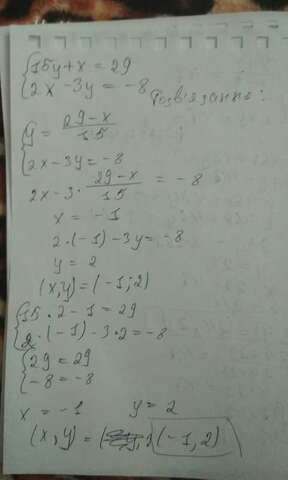 {15y + x = 29
{2x - 3y = -8
Розв'язання:
{y = (29 - x)/15
{2x - 3y = -8
2x - 3 · (29 - x)/15 = -8
x = -1
2·(-1) - 3y = -8
y = 2
(x, y) = (-1; 2)
{15 · 2 - 1 = 29
{2 · (-1) - 3 · 2 = -8
{29 = 29
{-8 = -8
x = -1 y = 2
(x, y) = (-1, 2)